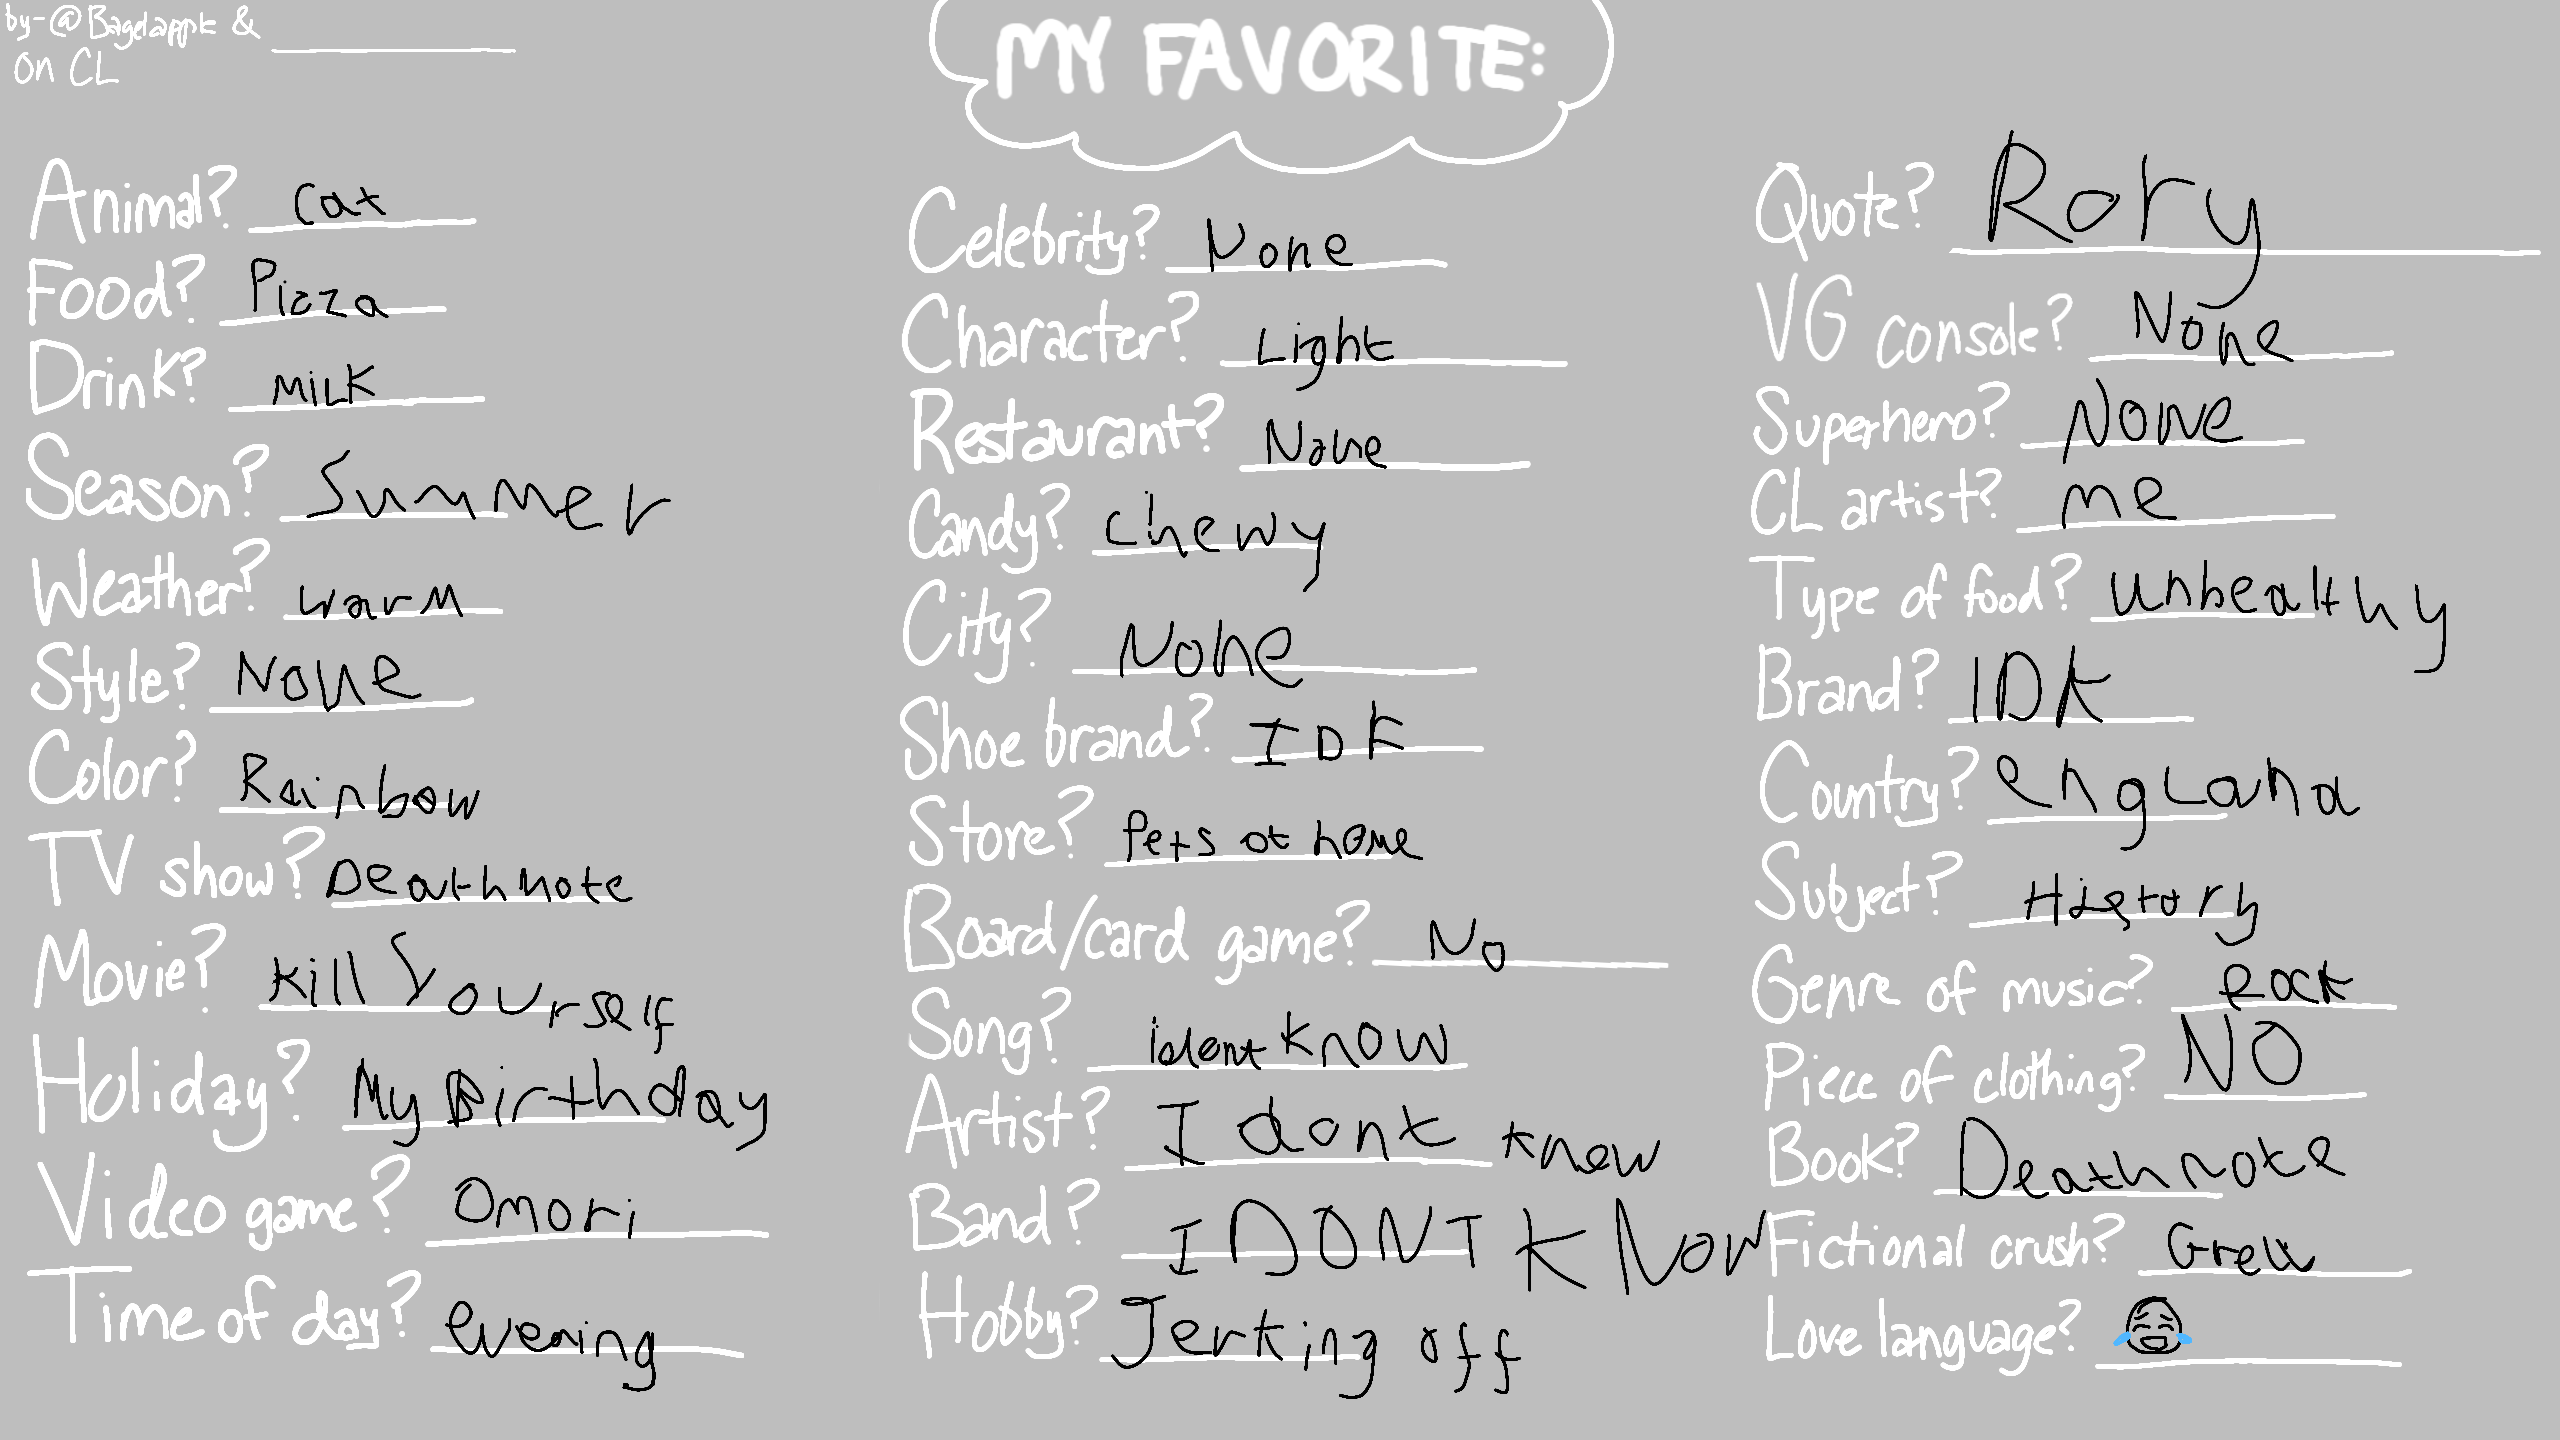 by-@Bagelapple &
on CL
MY FAVORITE:
Animal? Cat
Food? Pizza
Drink? MiLK
Season? Summer
Weather? warm
Style? None
Color? Rainbow
TV show? Deathnote
Movie? Kill Yourself
Holiday? My Birthday
Video game? Omori
Time of day? evening
Celebrity? None
Character? Light
Restaurant? None
Candy? chewy
City? None
Shoe brand? IDK
Store? Pets at home
Board/card game? No
Song? i dont know
Artist? I dont know
Band? I DONT KNOW
Hobby? Jerking off
Quote? Rory
VG console? None
Superhero? None
CL artist? me
Type of food? unhealthy
Brand? IDK
Country? engLand
Subject? History
Genre of music? Rock
Piece of clothing? NO
Book? Deathnote
Fictional crush?
Love language? 😂